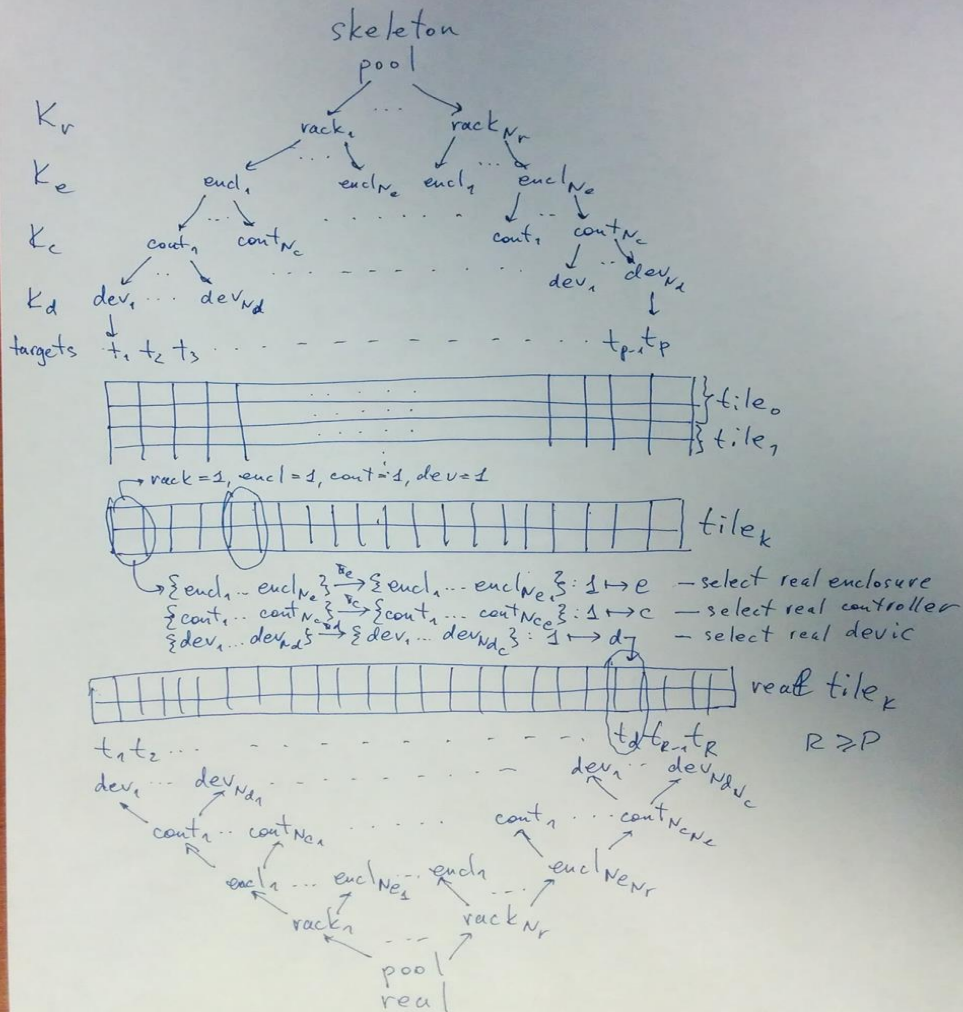 skeleton
pool
K_r rack_1 ... rack_{N_r}
K_e encl_1 ... encl_{N_e} encl_1 ... encl_{N_e}
K_c cont_1 ... cont_{N_c} ... cont_1 .. cont_{N_c}
K_d dev_1 ... dev_{N_d} ... dev_1 .. dev_{N_d}
targets t_1 t_2 t_3 ... t_{P-1} t_P
} tile_0
} tile_1
rack=1, encl=1, cont=1, dev=1
tile_k
{encl_1 ... encl_{N_e}} → {encl_1 ... encl_{N_{e_1}}} : 1 ↦ e – select real enclosure
{cont_1 .. cont_{N_c}} → {cont_1 ... cont_{N_{c_e}}} : 1 ↦ c – select real controller
{dev_1 ... dev_{N_d}} → {dev_1 ... dev_{N_{d_c}}} : 1 ↦ d – select real devic
real tile_k
t_1 t_2 ... t_d t_{R-1} t_R R ≥ P
dev_1 ... dev_{N_{d_1}} dev_1 .. dev_{N_{d_{N_c}}}
cont_1 .. cont_{N_{c_1}} ... cont_1 ... cont_{N_{c_{N_e}}}
encl_1 ... encl_{N_{e_1}} ... encl_1 ... encl_{N_{e_{N_r}}}
rack_1 ... rack_{N_r}
pool
real